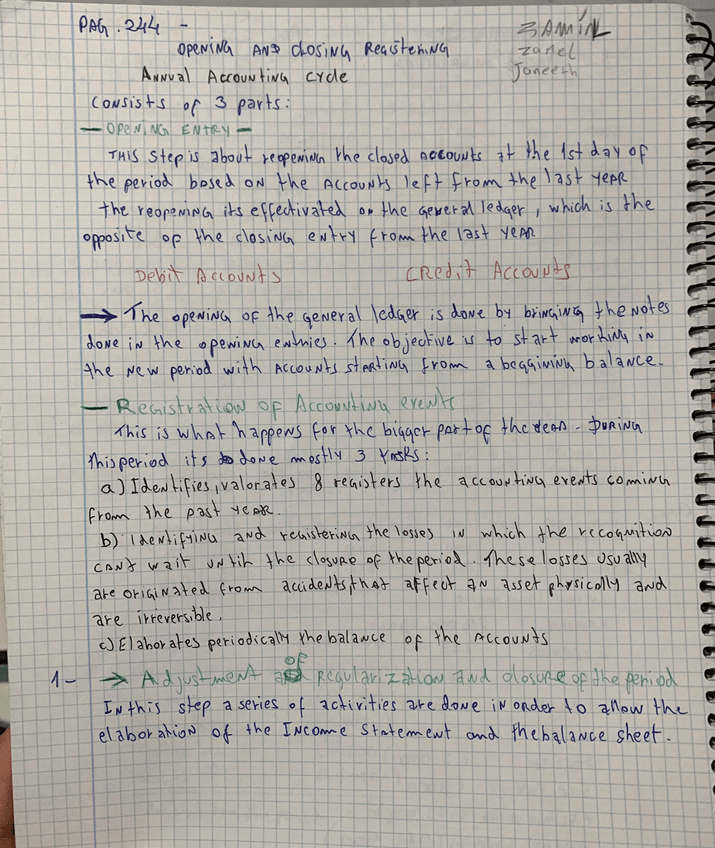 PAG. 244 -
ZAMÍN
Zanel
Janeeth
OPENING AND CLOSING REGISTERING
ANNUAL ACCOUNTING CYCLE
CONSISTS OF 3 PARTS:
— OPENING ENTRY —
THIS step is about reopening the closed accounts at the 1st day of
the period based on the accounts left from the last year
the reopening its effectivated on the general ledger, which is the
opposite of the closing entry from the last year
Debit Accounts
Credit Accounts
→ The opening of the general ledger is done by bringing the notes
done in the opening entries. The objective is to start working in
the new period with accounts starting from a beggining balance.
— Registration of Accounting events
This is what happens for the bigger part of the year. During
this period its done mostly 3 tasks:
a) Identifies, valorates & registers the accounting events coming
from the past year.
b) Identifying and registering the losses in which the recognition
can't wait until the closure of the period. These losses usually
are originated from accidents, that affect an asset physically and
are irreversible.
c) Elaborates periodically the balance of the accounts
1- → Adjustment of regularization and closure of the period
In this step a series of activities are done in order to allow the
elaboration of the Income Statement and the balance sheet.